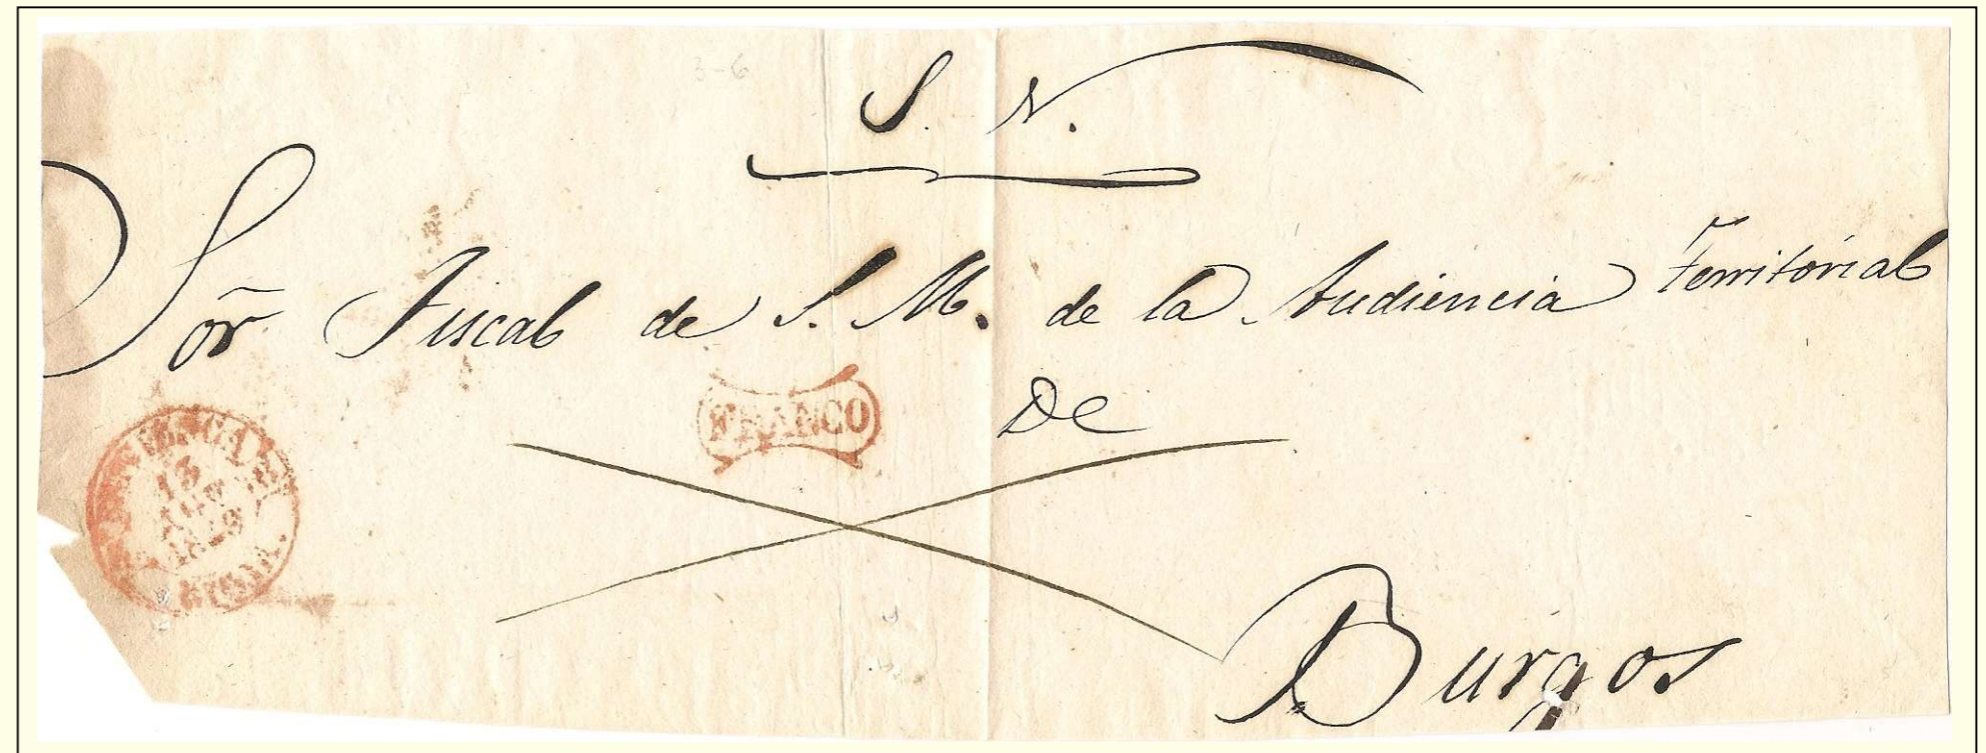 3-6
S. N.
Sor Fiscal de S. M. de la Audiencia Territorial
FRANCO
De
13
AGO
1849
Burgos